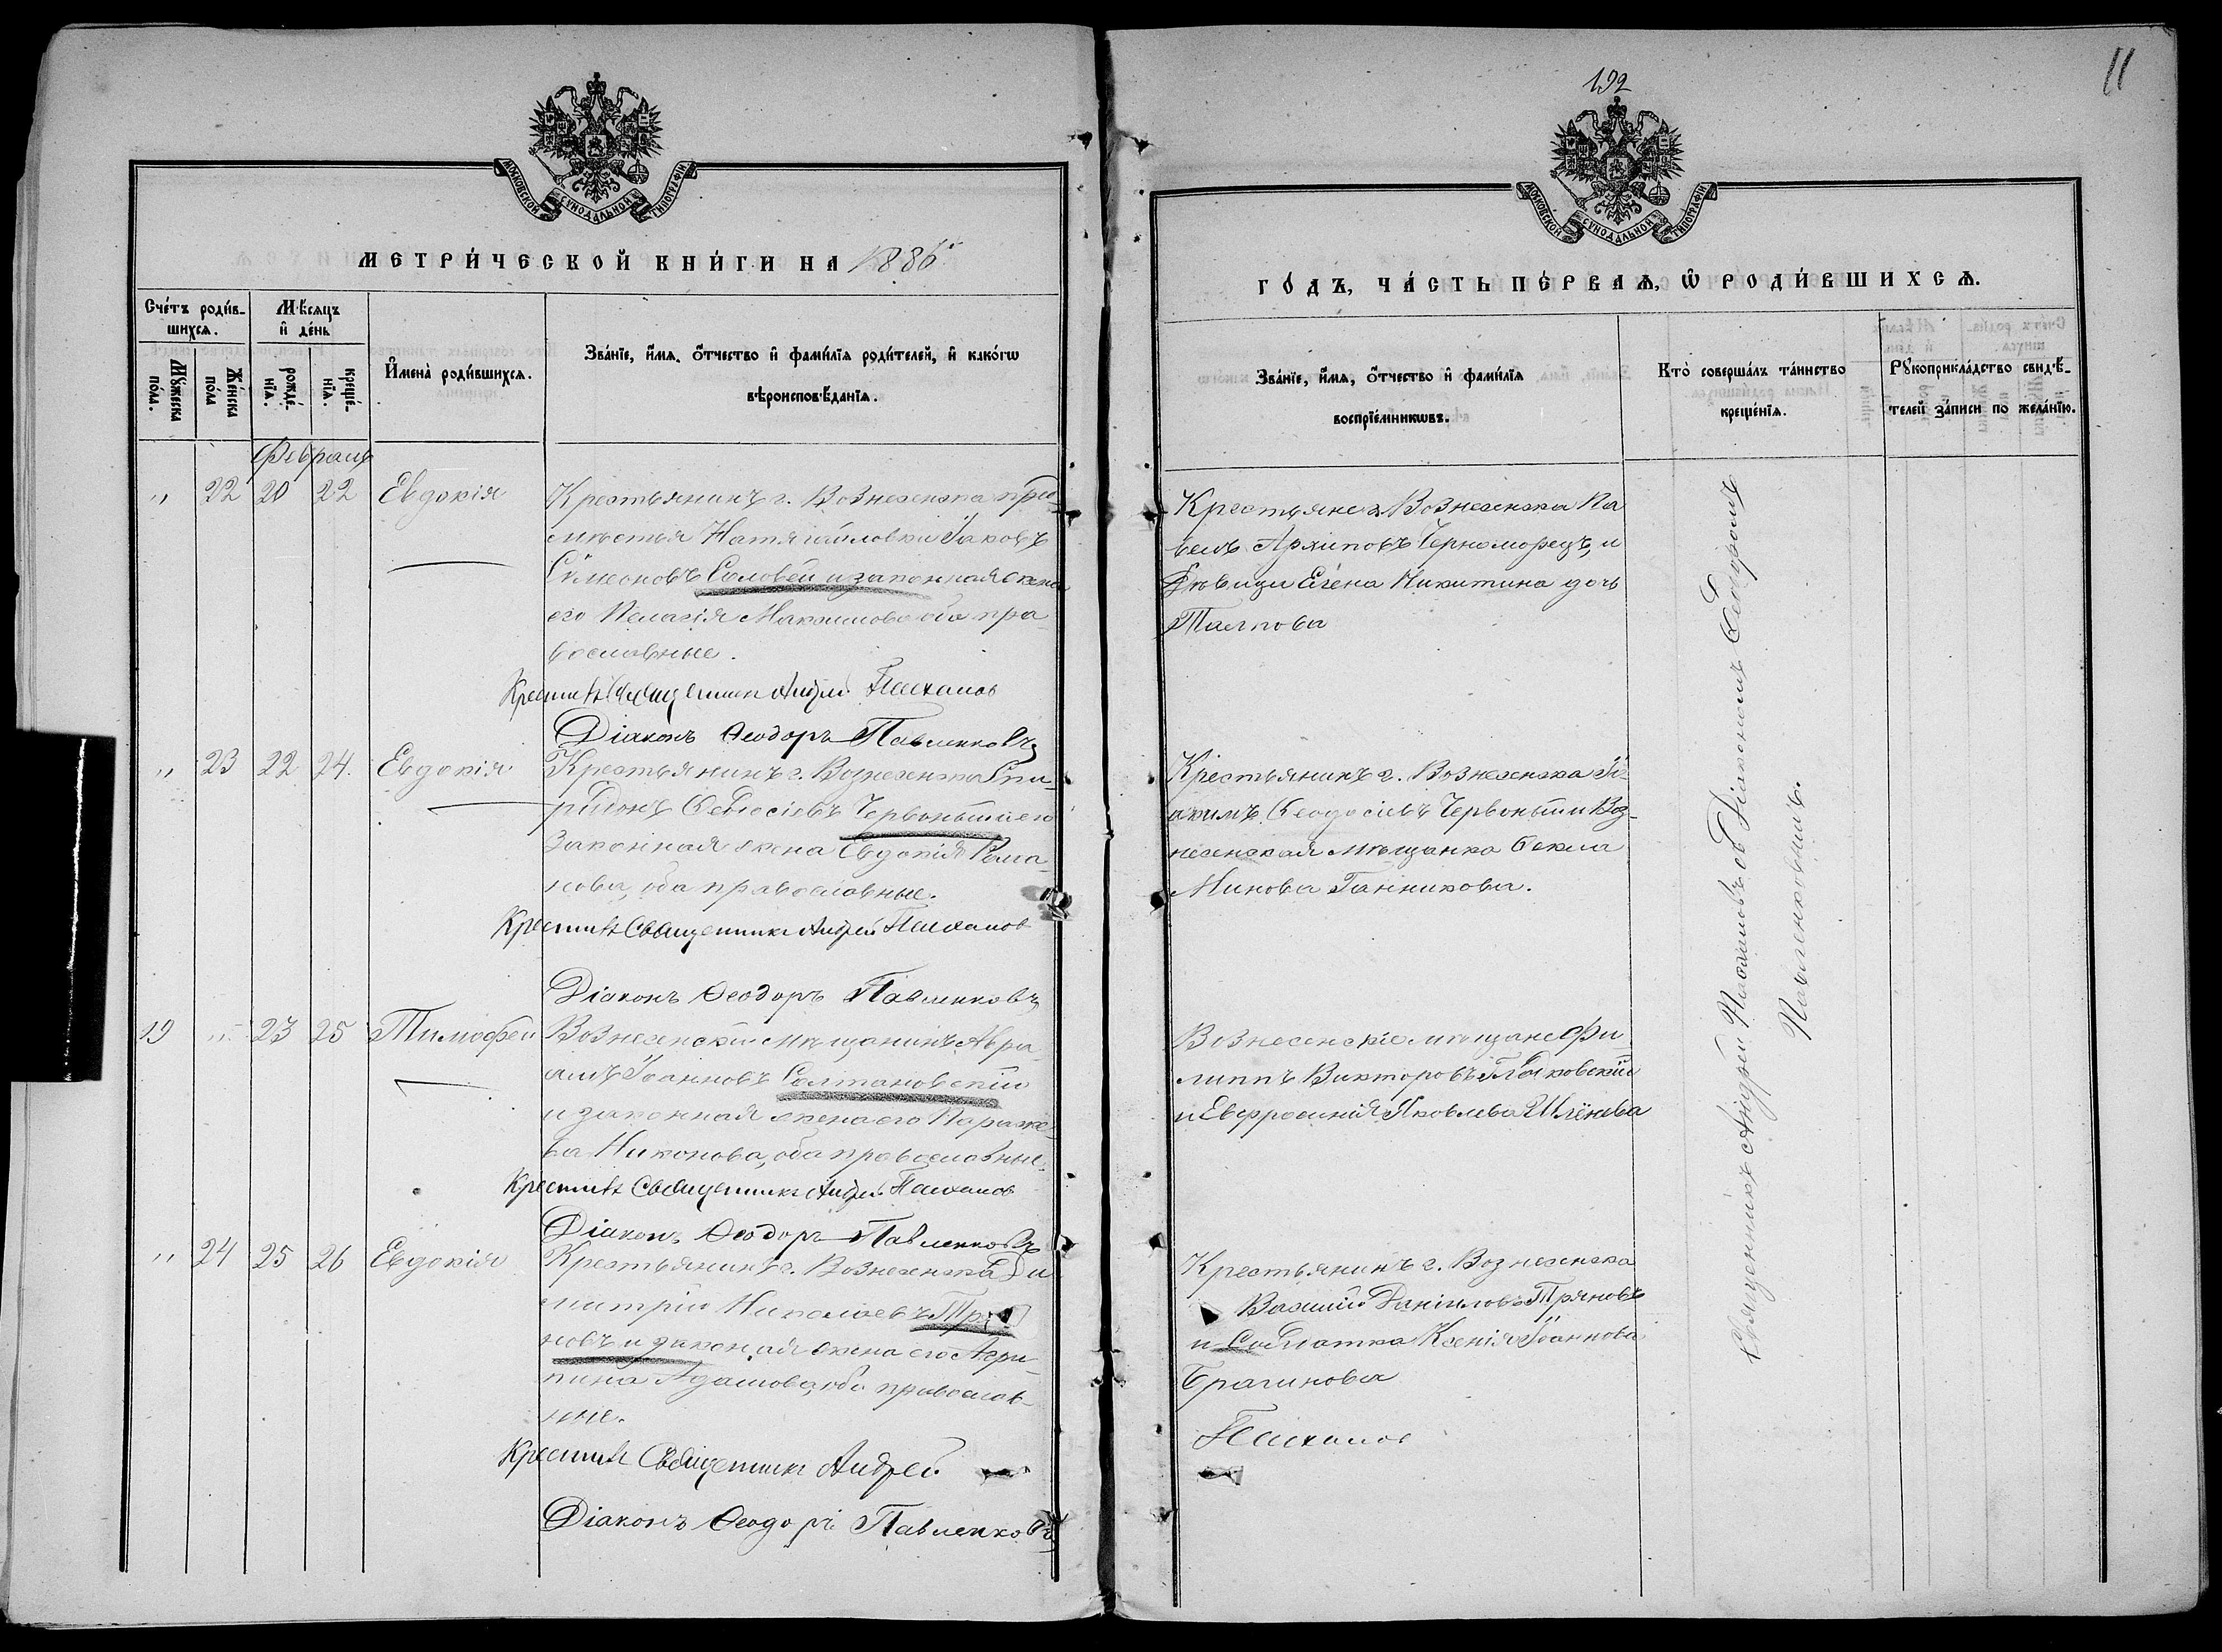 192
11
МОСКОВСКОЙ СѴНОДАЛЬНОЙ ТИПОГРАФІИ
МОСКОВСКОЙ СѴНОДАЛЬНОЙ ТИПОГРАФІИ
МЕТРИ́ЧЕСКОЙ КНИ́ГИ НА 1886
Сче́тъ роди́в-
шихсѧ.
Мѣсѧцъ
и҆ де́нь
Мꙋ́жеска
по́ла.
Же́нска
по́ла
рожде́-
нїѧ.
креще́-
нїѧ.
И҆мена̀ роди́вшихсѧ.
Зва́нїе, и҆́мѧ, ѻ҆́тчество и҆ фами́лїѧ роди́телей, и҆ како́гѡ
вѣроисповѣ́данїѧ.
Февраль
" 22 20 22 Евдокія
Крестьянинъ г. Вознесенска пред-
мѣстья Натягайловки Іаковъ
Сѵмеоновъ Соловей и законная жена
его Пелагія Максимова оба пра-
вославные.
Крестилъ Священникъ Андрей
Діаконъ Ѳеодоръ Павленковъ
" 23 22 24. Евдокія
Крестьянинъ г. Вознесенска Спи-
ридонъ Ѳеодосіевъ Червоный его
законная жена Евдокія Рома-
нова, оба православные.
Крестилъ Священникъ Андрей
Діаконъ Ѳеодоръ Павленковъ
19 " 23 25 Тимофей
Вознесенскій мѣщанинъ Авра-
амъ Іоанновъ Солтановскій
и законная жена его Параске-
ва Никонова, оба православные.
Крестилъ Священникъ Андрей
Діаконъ Ѳеодоръ Павленковъ
" 24 25 26 Евдокія
Крестьянинъ г. Вознесенска Ди-
митрій Николаевъ Тря
новъ и законная жена его Агри-
пина Адамова, оба православ-
ные.
Крестилъ Священникъ Андрей
Діаконъ Ѳеодоръ Павленковъ
ГО́ДЪ, ЧА́СТЬ ПЕ́РВАѦ, Ѽ РОДИ́ВШИХСѦ.
Зва́нїе, и҆́мѧ, ѻ҆́тчество и҆ фами́лїѧ
воспрїе́мникѡвъ.
Кто̀ соверша́лъ та́инство
креще́нїѧ.
Рꙋкоприкла́дство свидѣ́-
телей за́писи по жела́нїю.
Крестьяне г. Вознесенска Па
велъ Архиповъ Черноморецъ, и
дѣвица Елена Никитина дочь
Крестьянинъ г. Вознесенска Іо-
акимъ Ѳеодосіевъ Червоный и Воз-
несенская мѣщанка Ѳекла
Минова Ганникова.
Вознесенскіе мѣщане Фи-
липпъ Викторовъ
и Евфросинія Яковлева
Крестьянинъ г. Вознесенска
Василій Даніиловъ Тряновъ
и Солдатка Ксенія Іоаннова
Брагинова
Священникъ Андрей съ Діакономъ Ѳеодоромъ
Павленковымъ.